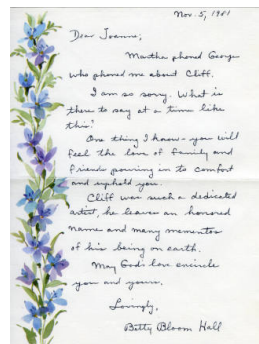 Nov. 5, 1981
Dear Joanne,
Martha phoned George
who phoned me about Cliff.
I am so sorry. What is
there to say at a time like
this?
One thing I know - you will
feel the love of family and
friends pouring in to comfort
and uphold you.
Cliff was such a dedicated
artist, he leaves an honored
name and many mementos
of his being on earth.
May God's love encircle
you and yours,
Lovingly,
Betty Bloom Hall